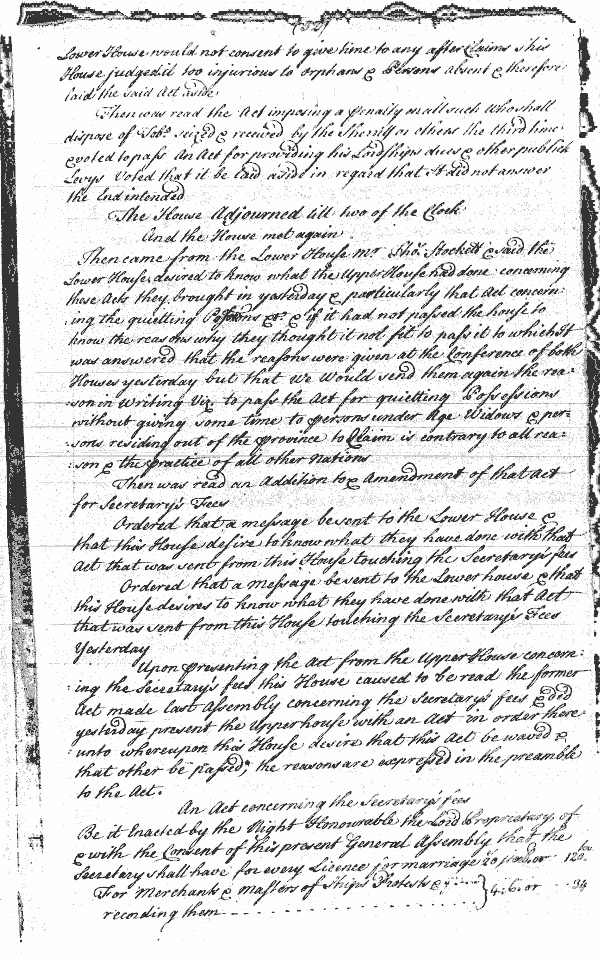 (32)
Lower House would not consent to give time to any after Claims this
House judged it too injurious to orphans & Persons absent & therefore
laid the said Act aside
Then was read the Act imposing a penalty on all such who shall
dispose of Tobo. seized & received by the Sheriff or others the third time
& voted to pass An Act for providing his Lordships dues & other publick
Levys Voted that it be laid aside in regard that It did not answer
the End intended
The House Adjourned till two of the Clock
And the House met again
Then came from the Lower House Mr. Tho. Stockett & said the
Lower House desired to know what the Upper House had done concerning
these Acts they brought in yesterday & particularly that Act concern:
:ing the quietting Possessions &c. & if it had not passed the house to
know the reasons why they thought it not fit to pass it to which It
was answered that the reasons were given at the Conference of both
Houses yesterday but that we Would send them again the rea=
:son in Writing Viz. to pass the Act for quietting Possessions
without giving some time to persons under Age Widows & per=
:sons residing out of the province to Claim is contrary to all rea=
:son & the practice of all other Nations
Then was read an Addition to & Amendment of that Act
for Secretary's Fees
Ordered that a message be sent to the Lower House &
that this House desire to know what they have done with that
Act that was sent from this House touching the Secretary's fees
Ordered that a message be sent to the Lower house & that
this House desires to know what they have done with that Act
that was sent from this House touching the Secretary's Fees
Yesterday
Upon presenting the Act from the Upper House concern:
:ing the Secretary's fees this House caused to be read the former
Act made last Assembly concerning the Secretary's fees & did
yesterday present the Upper house with an Act in order there
unto whereupon this House desire that this Act be waved &
that other be passed, the reasons are expressed in the preamble
to the Act.
An Act concerning the Secretary's fees
Be it Enacted by the Right Honourable the Lord Proprietary, of
& with the Consent of this present General Assembly that the
Secretary shall have for every Licence for marriage 20 or 120
For Merchants & masters of Ships Protests &
recording them 4:6. or 34